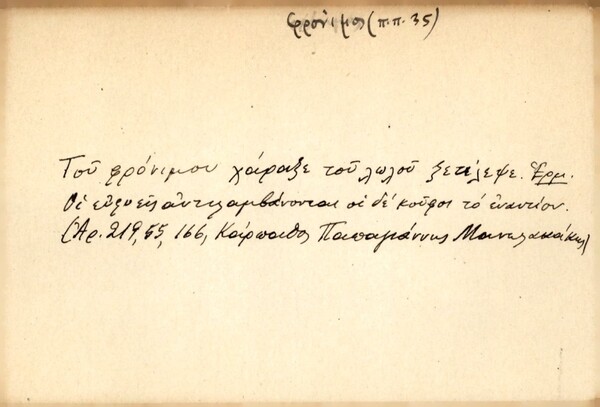 φρόνιμος (π.π. 35)
Τοῦ φρόνιμου χάραξε τοῦ λωλοῦ ξετέλεψε. Ἑρμ.
Οἱ εὐφυεῖς ἀντιλαμβάνονται οἱ δέ κοῦφοι τό ἐναντίον.
(Ἀρ. 219, 55, 166, Κάρπαθος Παπαγιάννης Μανωλακάκης)